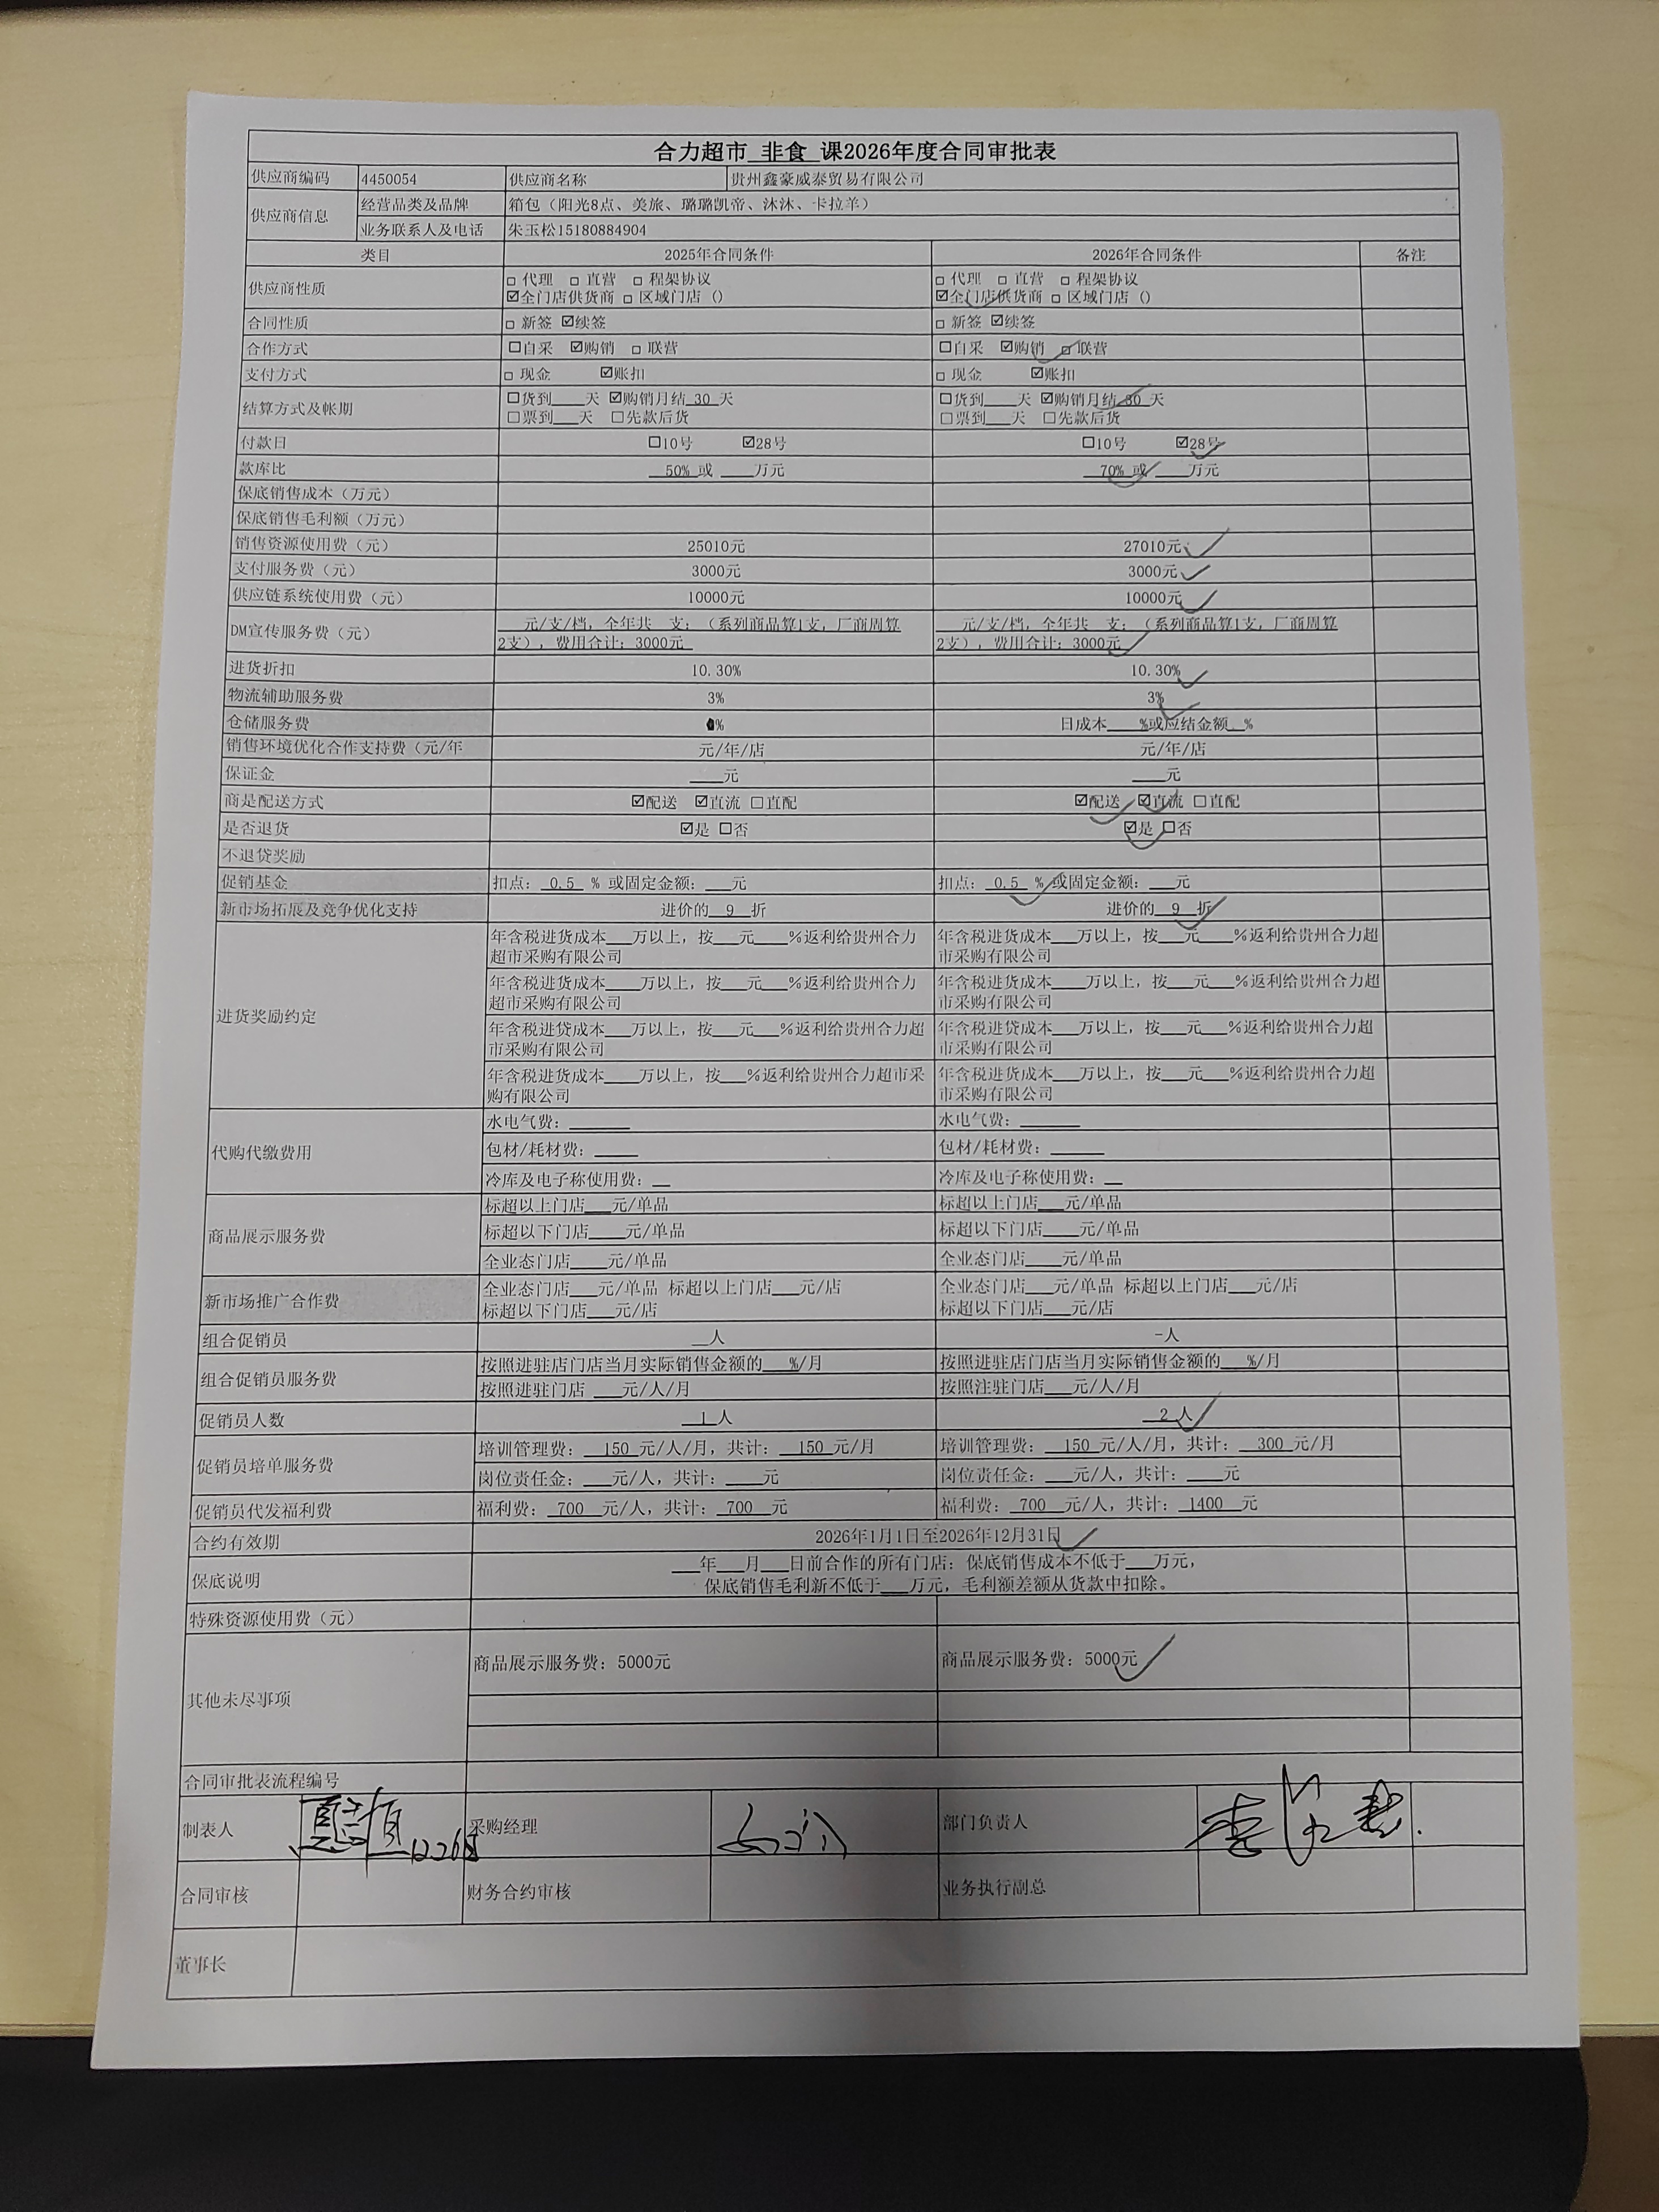 合力超市 非食 课2026年度合同审批表
供应商编码 4450054 供应商名称 贵州鑫豪威泰贸易有限公司
供应商信息 经营品类及品牌 箱包（阳光8点、美旅、璐璐凯帝、沐沐、卡拉羊）
业务联系人及电话 朱玉松15180884904
类目 2025年合同条件 2026年合同条件 备注
供应商性质 □ 代理 □ 直营 □ 程架协议 □ 代理 □ 直营 □ 程架协议
☑全门店供货商 □ 区域门店（） ☑全门店供货商 □ 区域门店（）
合同性质 □ 新签 ☑续签 □ 新签 ☑续签
合作方式 □自采 ☑购销 □ 联营 □自采 ☑购销 □ 联营
支付方式 □ 现金 ☑账扣 □ 现金 ☑账扣
结算方式及帐期 □货到____天 ☑购销月结 30 天 □货到____天 ☑购销月结 30 天
□票到___天 □先款后货 □票到___天 □先款后货
付款日 □10号 ☑28号 □10号 ☑28号
款库比 50% 或 ____万元 70% 或 ____万元
保底销售成本（万元）
保底销售毛利额（万元）
销售资源使用费（元） 25010元 27010元
支付服务费（元） 3000元 3000元
供应链系统使用费（元） 10000元 10000元
DM宣传服务费（元） ___元/支/档，全年共__支；（系列商品算1支，厂商周算 ___元/支/档，全年共__支；（系列商品算1支，厂商周算
2支），费用合计：3000元 2支），费用合计：3000元
进货折扣 10.30% 10.30%
物流辅助服务费 3% 3%
仓储服务费 % 日成本____%或应结金额__%
销售环境优化合作支持费（元/年 元/年/店 元/年/店
保证金 ____元 ____元
商是配送方式 ☑配送 ☑直流 □直配 ☑配送 ☑直流 □直配
是否退货 ☑是 □否 ☑是 □否
不退贷奖励
促销基金 扣点： 0.5 % 或固定金额：___元 扣点： 0.5 % 或固定金额：___元
新市场拓展及竞争优化支持 进价的 9 折 进价的 9 折
进货奖励约定 年含税进货成本___万以上，按___元____%返利给贵州合力 年含税进货成本___万以上，按___元____%返利给贵州合力超
超市采购有限公司 市采购有限公司
年含税进货成本____万以上，按___元___%返利给贵州合力 年含税进货成本____万以上，按___元___%返利给贵州合力超
超市采购有限公司 市采购有限公司
年含税进贷成本___万以上，按___元___%返利给贵州合力超 年含税进贷成本___万以上，按___元___%返利给贵州合力超
市采购有限公司 市采购有限公司
年含税进货成本____万以上，按___%返利给贵州合力超市采 年含税进货成本___万以上，按___元___%返利给贵州合力超
购有限公司 市采购有限公司
代购代缴费用 水电气费：_______ 水电气费：_______
包材/耗材费：_____ 包材/耗材费：______
冷库及电子称使用费：__ 冷库及电子称使用费：__
商品展示服务费 标超以上门店___元/单品 标超以上门店___元/单品
标超以下门店____元/单品 标超以下门店____元/单品
全业态门店____元/单品 全业态门店____元/单品
新市场推广合作费 全业态门店___元/单品 标超以上门店___元/店 全业态门店___元/单品 标超以上门店___元/店
标超以下门店___元/店 标超以下门店___元/店
组合促销员 __人 -人
组合促销员服务费 按照进驻店门店当月实际销售金额的___%/月 按照进驻店门店当月实际销售金额的___%/月
按照进驻门店 ___元/人/月 按照注驻门店___元/人/月
促销员人数 1 人 2 人
促销员培单服务费 培训管理费： 150 元/人/月，共计： 150 元/月 培训管理费： 150 元/人/月，共计： 300 元/月
岗位责任金：___元/人，共计：____元 岗位责任金：___元/人，共计：____元
促销员代发福利费 福利费： 700 元/人，共计： 700 元 福利费： 700 元/人，共计： 1400 元
合约有效期 2026年1月1日至2026年12月31日
保底说明 ___年___月___日前合作的所有门店：保底销售成本不低于___万元，
保底销售毛利新不低于___万元，毛利额差额从货款中扣除。
特殊资源使用费（元）
其他未尽事项 商品展示服务费：5000元 商品展示服务费：5000元
合同审批表流程编号
制表人 采购经理 部门负责人
合同审核 财务合约审核 业务执行副总
董事长